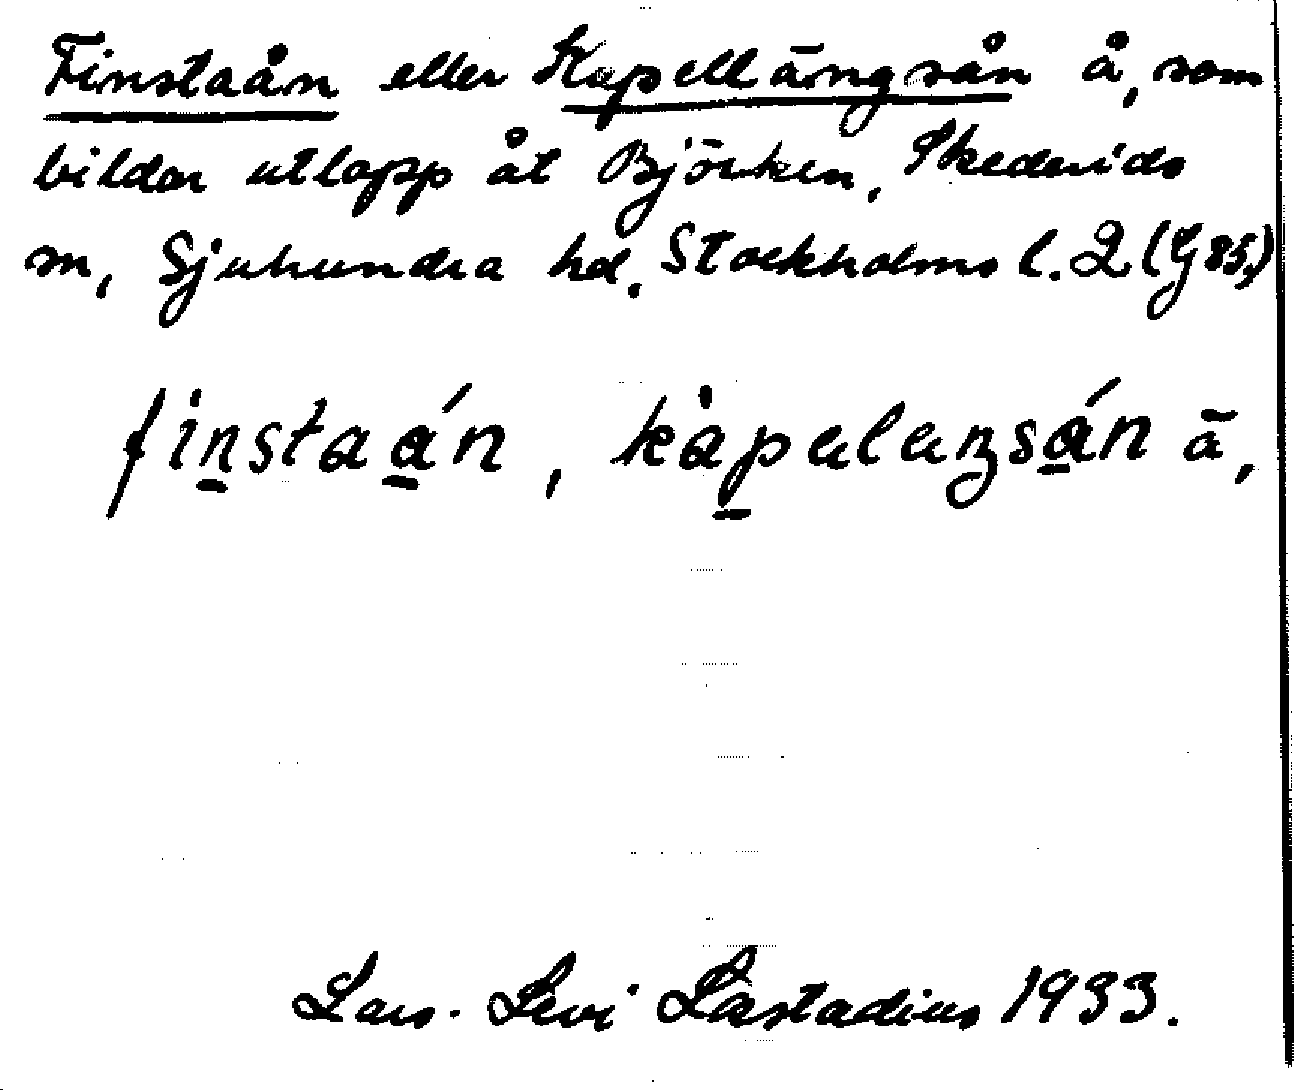 Finstaån eller Kapellängsån å, som
bildar utlopp åt Björken, Skederids
sn, Sjuhundra hd, Stockholms l. 2 (G 85,)
finstaán, kàpalaŋsán ā,
Lars-Levi Læstadius 1933.